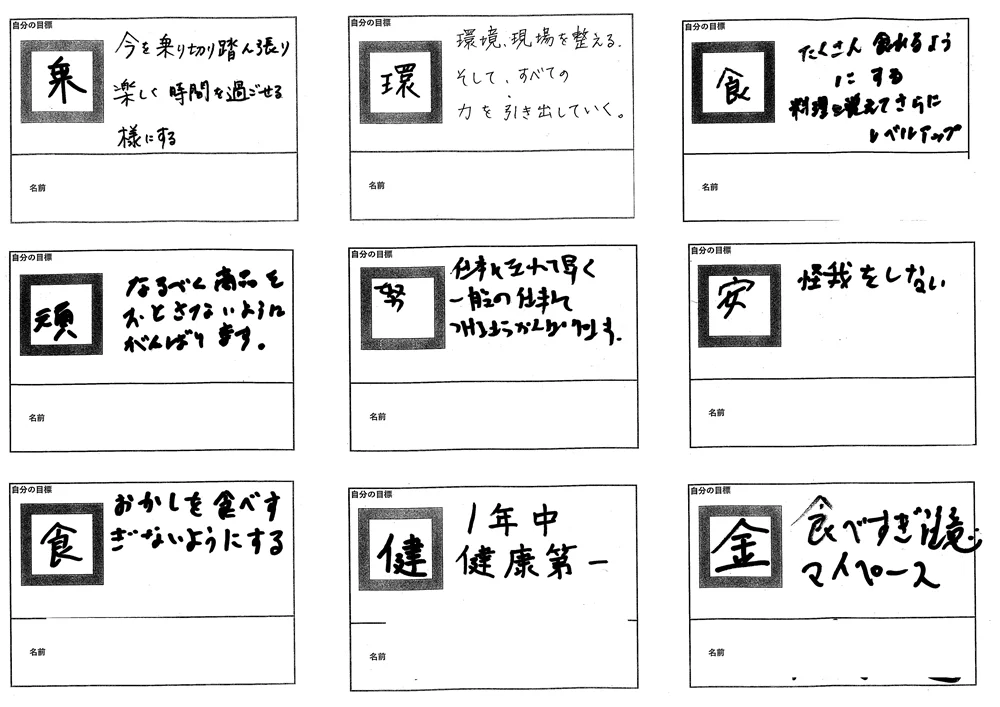 自分の目標
乗
今を乗り切り踏ん張り
楽しく時間を過ごせる
様にする
名前
自分の目標
環
環境、現場を整える。
そして、すべての
力を引き出していく。
名前
自分の目標
食
たくさん食れるよう
にする
料理を覚えてさらに
レベルアップ
名前
自分の目標
頑
なるべく商品を
おとさないように
がんばります。
名前
自分の目標
努
早く
一般の仕事
名前
自分の目標
安
怪我をしない
名前
自分の目標
食
おかしを食べす
ぎないようにする
名前
自分の目標
健
1年中
健康第一
名前
自分の目標
金
食べすぎ注意
マイペース
名前